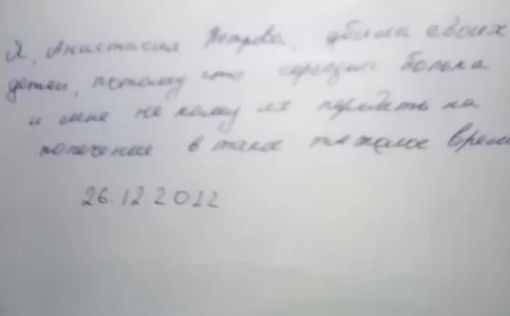 Я, Анастасия Петрова, убила своих
детей, потому что серьёзно больна
и мне не кому их передать на
попечение в такое тяжёлое время
26.12 2022